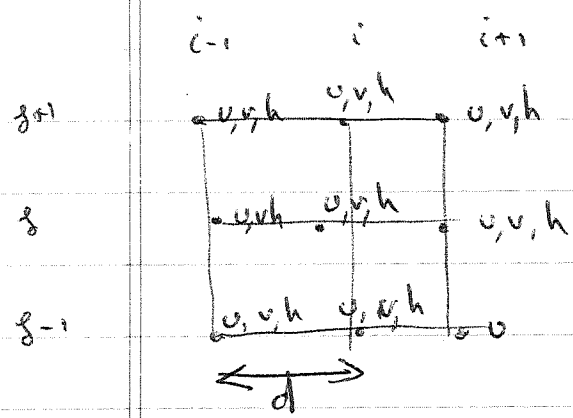 i-1 i i+1
j+1 u,v,h u,v,h u,v,h
j u,vh u,v,h u,v,h
j-1 u,v,h u,v,h u
d